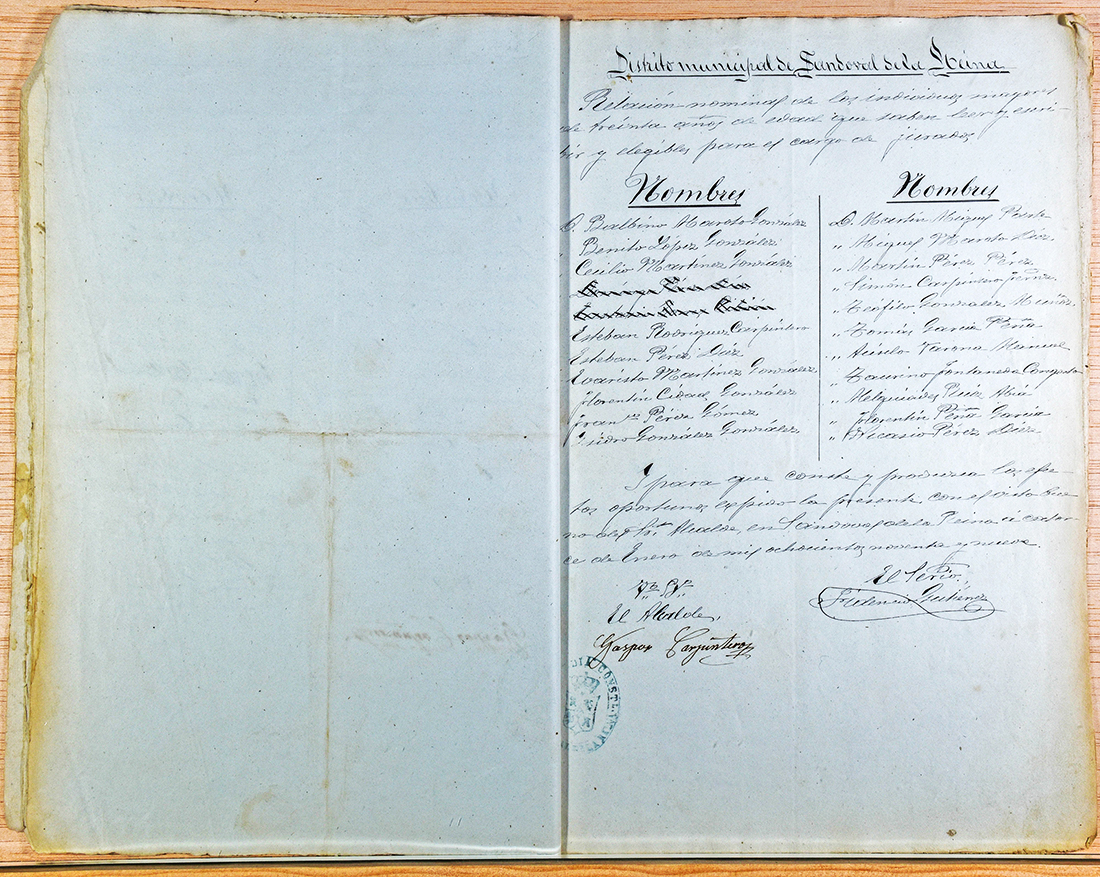 Distrito municipal de Sandoval de la Reina
Relación nominal de los individuos mayores
de treinta años de edad que saben leer y escri-
bir y elegibles para el cargo de jurados
Nombres
D. Balbino Maroto González
" Benito López González
" Cecilio Martínez González
Esteban Rodríguez Carpintero
Esteban Pérez Díez
Evaristo Martínez González
Florentín Cidad González
Fran.co Pérez Gómez
Isidro González González
Nombres
D. Martín Miguel
" Miguel Maroto Díez
" Martín Pérez Pérez
" Simón Carpintero
" Teófilo González
" Tomás García Peña
" Varona Manuel
" Taurino Fontaneda
" Melquiades
" Florentín Peña García
" Nicasio Pérez Díez
Y para que conste y produzca los efec-
tos oportunos expido la presente con el visto bue-
no del Sr. Alcalde, en Sandoval de la Reina á cator-
ce de Enero de mil ochocientos noventa y nueve.
El Serio,
Fidencio Gutiérrez
Vto Bno
El Alcalde,
Gaspar Carpintero
CONSTL